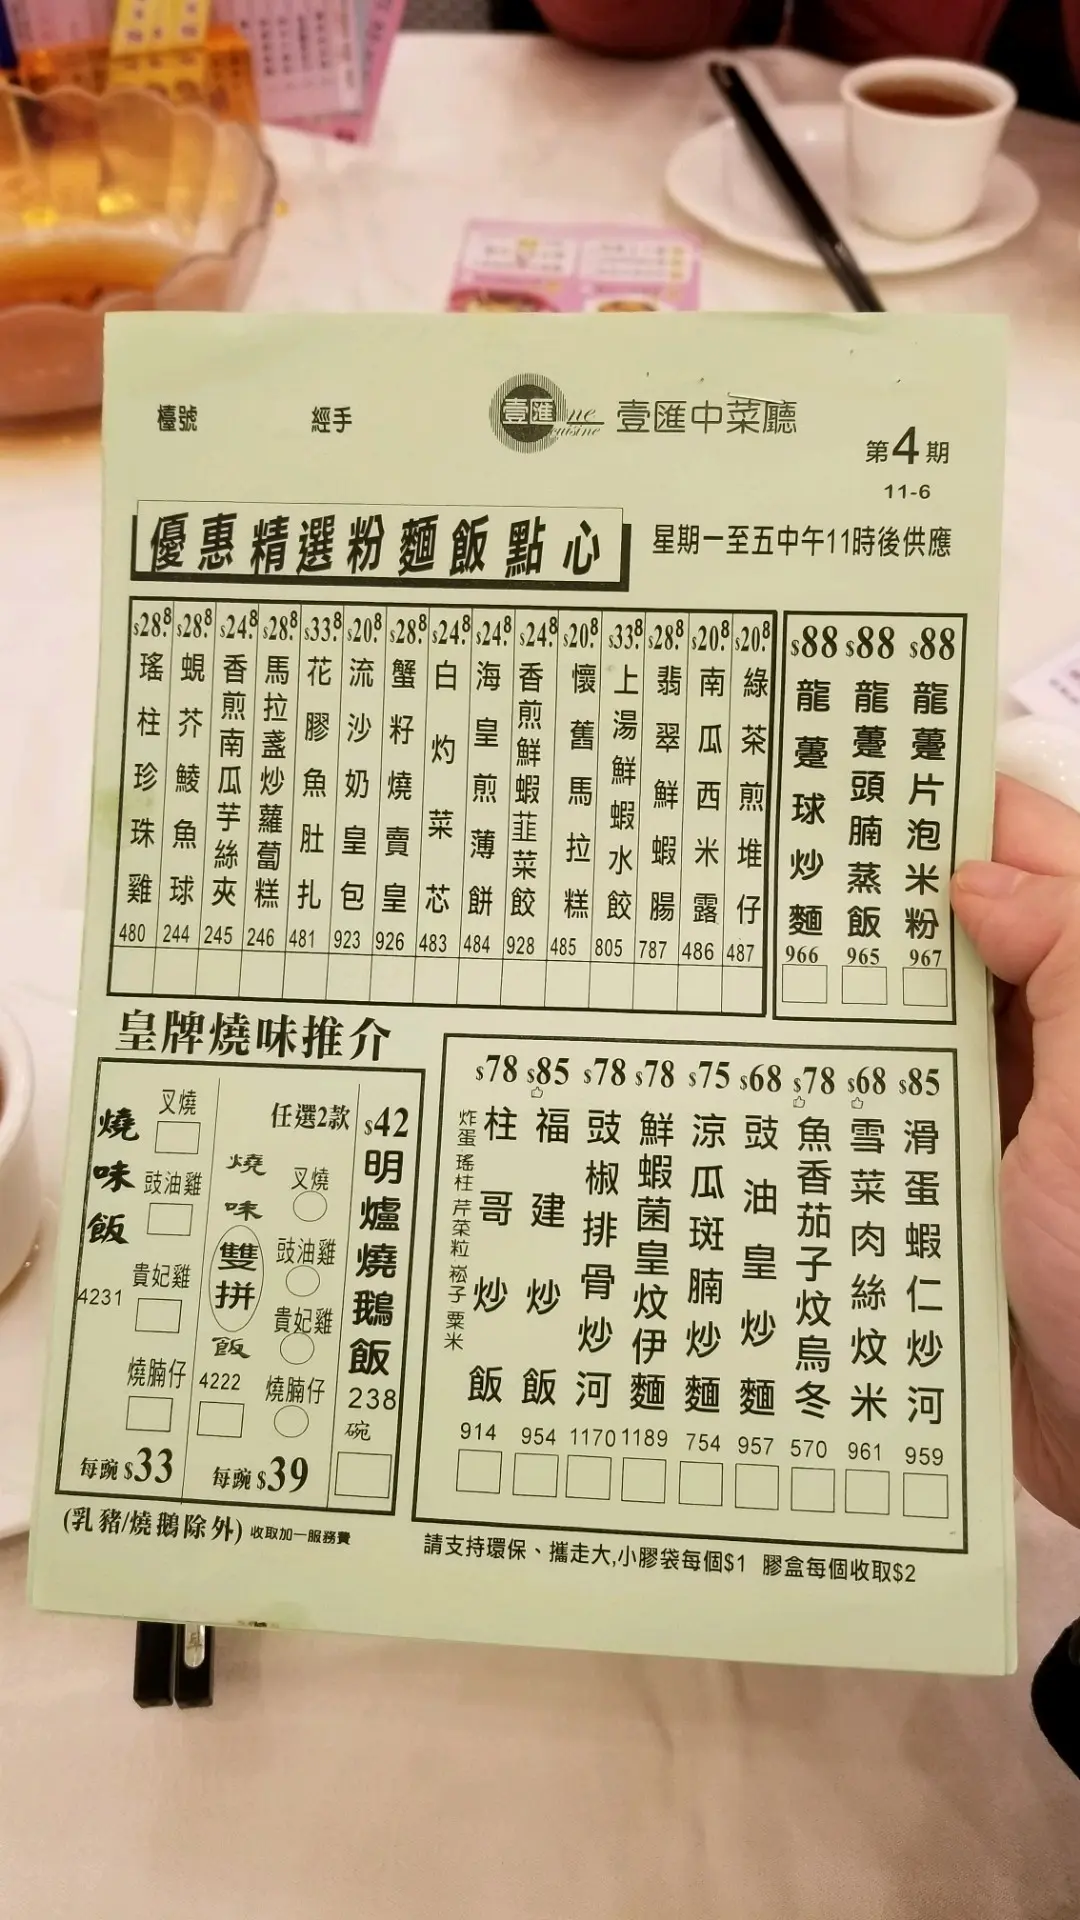 檯號
經手
壹匯
ne
cuisine
壹匯中菜廳
第4期
11-6
優惠精選粉麵飯點心
星期一至五中午11時後供應
$28.8 瑤柱珍珠雞 480
$28.8 蜆芥鯪魚球 244
$24.8 香煎南瓜芋絲夾 245
$28.8 馬拉盞炒蘿蔔糕 246
$33.8 花膠魚肚扎 481
$20.8 流沙奶皇包 923
$28.8 蟹籽燒賣皇 926
$24.8 白灼菜芯 483
$24.8 海皇煎薄餅 484
$24.8 香煎鮮蝦韮菜餃 928
$20.8 懷舊馬拉糕 485
$33.8 上湯鮮蝦水餃 805
$28.8 翡翠鮮蝦腸 787
$20.8 南瓜西米露 486
$20.8 綠茶煎堆仔 487
$88 龍躉球炒麵 966
$88 龍躉頭腩蒸飯 965
$88 龍躉片泡米粉 967
皇牌燒味推介
燒味飯
4231
叉燒
豉油雞
貴妃雞
燒腩仔
每豌 $33
任選2款
燒味雙拼飯
4222
叉燒
豉油雞
貴妃雞
燒腩仔
每豌 $39
$42
明爐燒鵝飯
238
碗
(乳豬/燒鵝除外) 收取加一服務費
$78 柱哥炒飯 914
炸蛋 瑤柱 芹菜粒 崧子 粟米
$85 福建炒飯 954
$78 豉椒排骨炒河 1170
$78 鮮蝦菌皇炆伊麵 1189
$75 涼瓜斑腩炒麵 754
$68 豉油皇炒麵 957
$78 魚香茄子炆烏冬 570
$68 雪菜肉絲炆米 961
$85 滑蛋蝦仁炒河 959
請支持環保、攜走大,小膠袋每個$1 膠盒每個收取$2